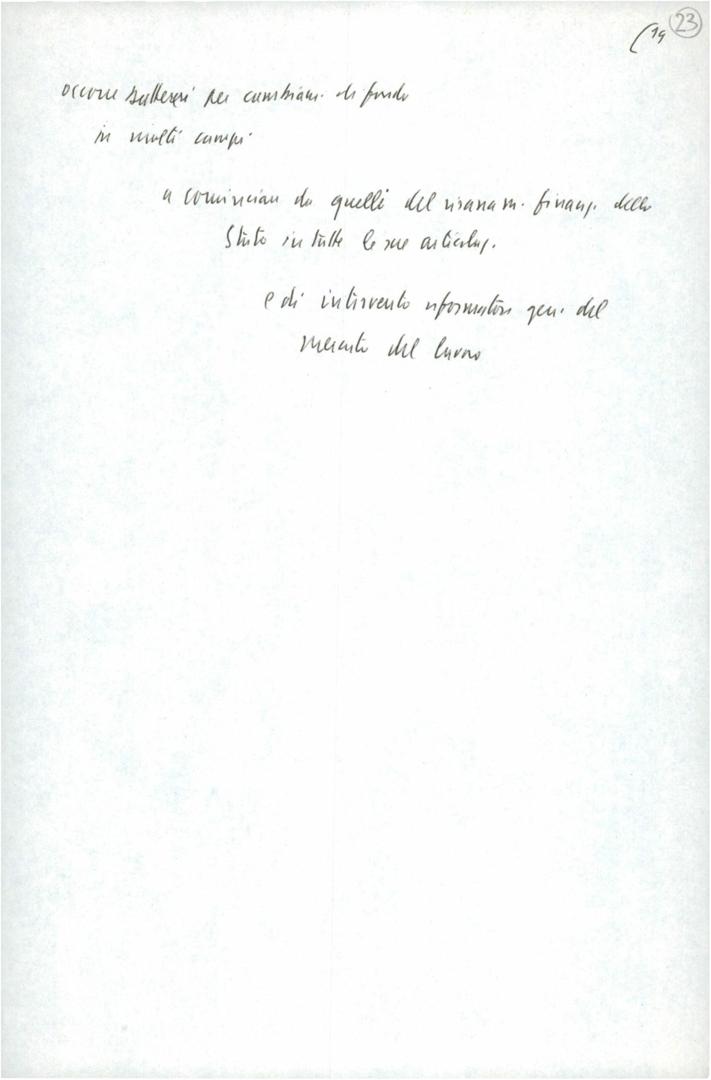 (19 23
occorre battersi per cambiam. di fondo
in molti campi
a cominciare da quelli del risanam. finanz. dello
Stato in tutte le sue articolaz.
e di intervento riformatore gen. del
mercato del lavoro